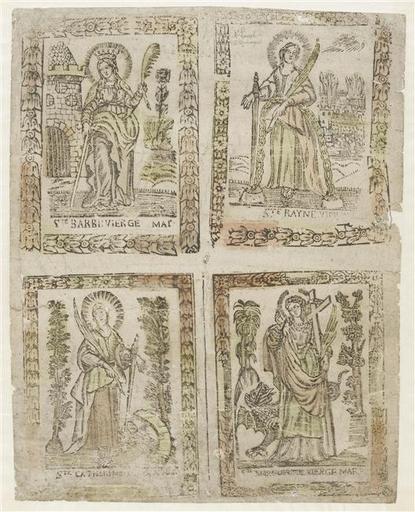 STE BARBE VIERGE MAR
STE RAYNE VIER
STE CATHERINE
STE MARGUERITE VIERGE MAR